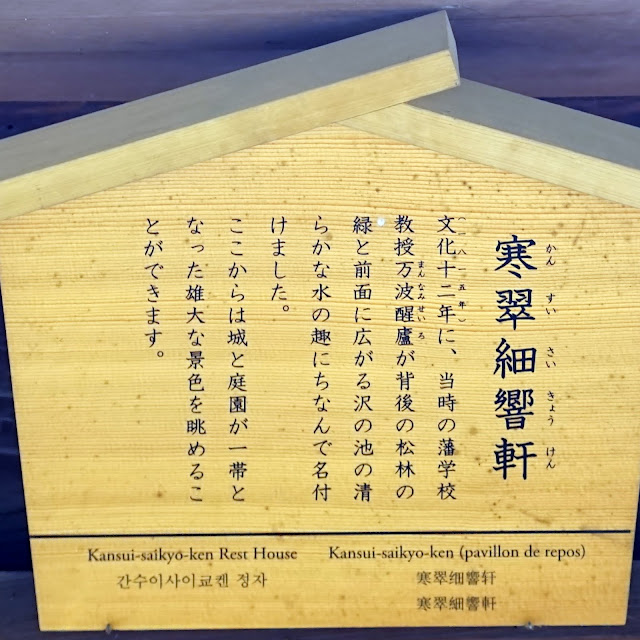 かん すい さい きょう けん
寒翠細響軒
（一八一五年）
文化十二年に、当時の藩学校
まんなみせいろ
教授万波醒廬が背後の松林の
緑と前面に広がる沢の池の清
らかな水の趣にちなんで名付
けました。
ここからは城と庭園が一帯と
なった雄大な景色を眺めるこ
とができます。
Kansui-saikyo-ken Rest House
간수이사이쿄켄 정자
Kansui-saikyo-ken (pavillon de repos)
寒翠细響轩
寒翠細響軒